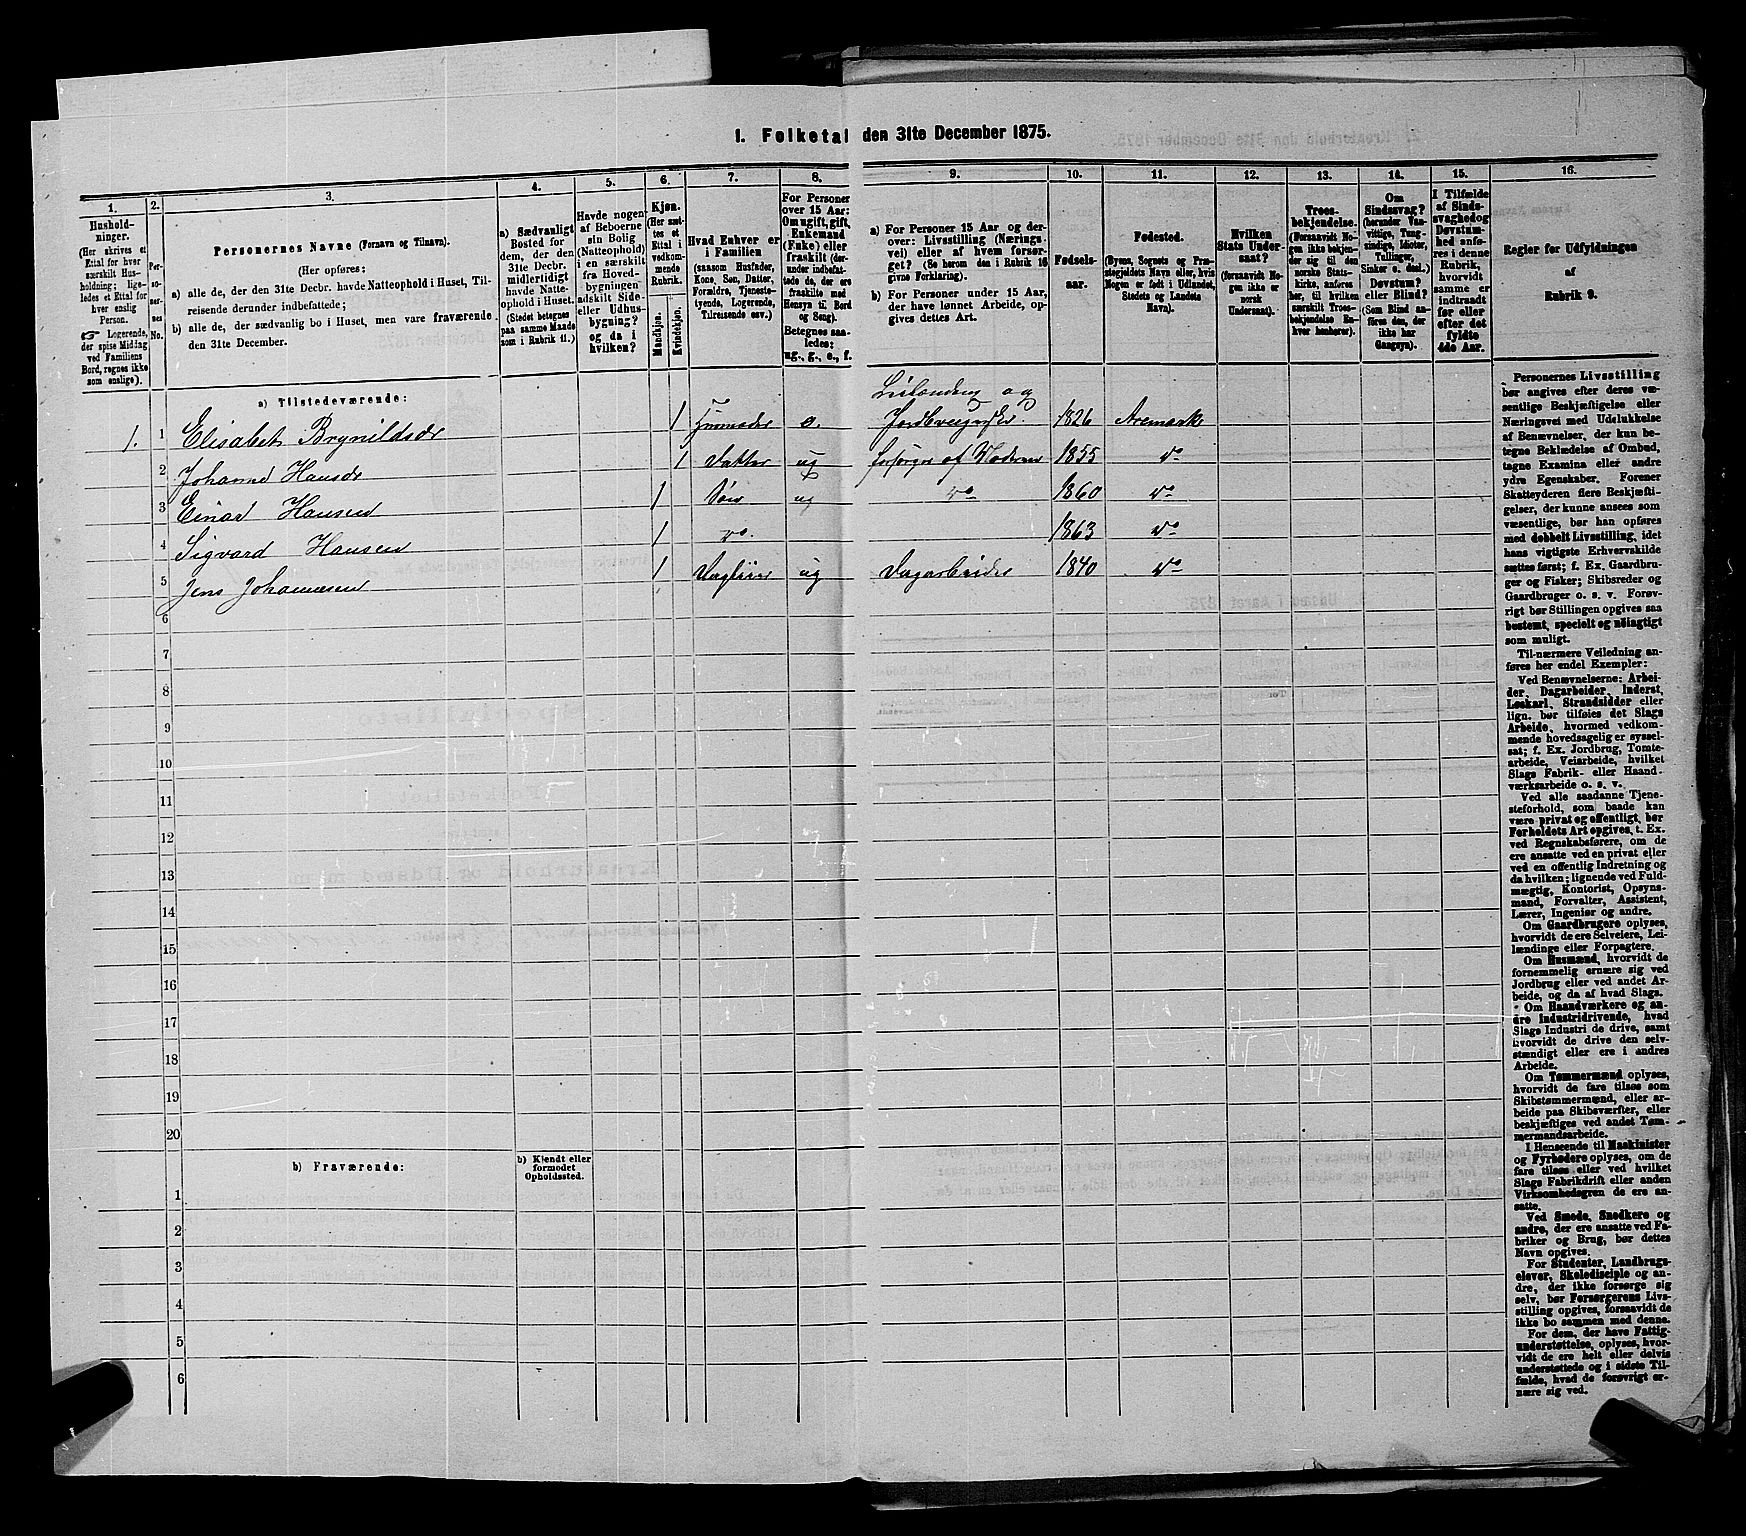 1. Folketal den 31te December 1875.
1.
Husholdninger.
(Her skrives et
Ettal for hver
særskilt Husholdning;
ligeledes et Ettal for
hver enslig
Person.
☞ Logerende,
der spise Middag
ved Familiens
Bord, regnes ikke
som enslige).
2.
Personernes
No.
3.
Personernes Navne (Fornavn og Tilnavn).
(Her opføres:
a) alle de, der den 31te Decbr. havde Natteophold i Huset, Tilreisende
derunder indbefattede;
b) alle de, der sædvanlig bo i Huset, men vare fraværende
den 31te December.
4.
a) Sædvanligt
Bosted for
dem, der den
31te Decbr.
havde
midlertidigt
Natteophold
i Huset.
(Stedet betegnes
paa samme Maade
som i Rubrik 11.)
5.
Havde nogen
af Beboerne
sin Bolig
(Natteophold)
i en særskilt
fra Hovedbygningen
adskilt Side-
eller Udhusbygning?
og da i
hvilken?
6.
Kjøn.
(Her sættes et
Ettal i
vedkommende
Rubrik.
Mandkjøn.
Kvindekjøn.
7.
Hvad Enhver er
i Familien
(saasom Husfader,
Kone, Søn, Datter,
Forældre, Tjenestetyende,
Logerende,
Tilreisende osv.)
8.
For Personer
over 15 Aar:
Om ugift, gift,
Enkemand
(Enke) eller
fraskilt (derunder
indbefattede
de, der ere
fraskilte med
Hensyn til Bord
og Seng).
Betegnes saaledes:
ug., g., e., f.
9.
a) For Personer 15 Aar og derover:
Livsstilling (Næringsvei)
eller af hvem forsørget?
(Se herom den i Rubrik 16
givne Forklaring).
b) For Personer under 15 Aar,
der have lønnet Arbeide, opgives
dettes Art.
10.
Fødselsaar.
11.
Fødested.
(Byens, Sognets og Præstegjeldets
Navn eller, hvis
Nogen er født i Udlandet,
Stedets og Landets
Navn).
12.
Hvilken
Stats Undersaat?
(forsaavidt Nogen
ikke er
norsk
Undersaat).
13.
Troesbekjendelse.
(Forsaavidt Nogen
ikke bekjender
sig til den
norske Statskirke,
anføres
her, til hvilken
særskilt Troesbekjendelse
Enhver
henhører).
14.
Om
Sindssvag?
(herunder Vanvittige,
Tungsindige,
Idioter,
Tullinger,
Sinker o. desl.)
Døvstum?
eller Blind?
(Som Blind anføres
den, der
ikke har
Gangsyn).
15.
I Tilfælde
af Sindssvaghed
og
Døvstumhed
anføres
i denne
Rubrik,
hvorvidt
samme er
indtraadt
før eller
efter det
fyldte
4de Aar.
16.
Regler for Udfyldningen
af
Rubrik 9.
a) Tilstedeværende:
1. 1 Elisabet Brynildsdr 1 Husmoder e. Leilænding og Jordbrugerske. 1826 Aremark
2 Johanne Hansdr 1 Datter ug forsørges af Moderen 1855 do
3 Einar Hansen 1 Søn ug do 1860 do
4 Sigvard Hansen 1 do. 1863 do
5 Jens Johannesen 1 ug Dagarbeider 1840 do
6
7
8
9
10
11
12
13
14
15
16
17
18
19
20
b) Fraværende:
b) Kjendt eller
formodet
Opholdssted.
1
2
3
4
5
6
Personernes Livsstilling
bør angives efter deres væsentlige
Beskjæftigelse eller
Næringsvei med Udelukkelse
af Benævnelser, der kun betegne
Beklædelse af Ombud,
tagne Examina eller andre
ydre Egenskaber. Forener
Skatteyderen flere Beskjæftigelser,
der kunne ansees som
væsentlige, bør han opføres
med dobbelt Livsstilling, idet
hans vigtigste Erhvervskilde
sættes først; f. Ex. Gaardbruger
og Fisker; Skibsreder og
Gaardbruger o. s. v. Forøvrigt
bør Stillingen opgives saa
bestemt, specielt og nøiagtigt
som muligt.
Til nærmere Veiledning anføres
her endel Exempler:
Ved Benævnelserne: Arbeider,
Dagarbeider, Inderst,
Løskarl, Strandsidder eller
lign. bør tilføies det Slags
Arbeide, hvormed vedkommende
hovedsagelig er sysselsat;
f. Ex. Jordbrug, Tomtearbeide,
Veiarbeide, hvilket
Slags Fabrik- eller Haandværksarbeide
o. s. v.
Ved alle saadanne Tjenesteforhold,
som baade kan
være privat og offentligt, bør
Forholdets Art opgives, t. Ex.
ved Regnskabsførere, om de
ere ansatte ved en privat eller
ved en offentlig Indretning og
da hvilken; lignende ved Fuldmægtig,
Kontorist, Opsynsmand,
Forvalter, Assistent,
Lærer, Ingeniør og andre.
Om Gaardbrugere oplyses,
hvorvidt de ere Selveiere, Leilændinge
eller Forpagtere.
Om Husmænd, hvorvidt de
fornemmelig ernære sig ved
Jordbrug eller ved andet Arbeide,
og da af hvad Slags.
Om Haandværkere og andre
Industridrivende, hvad
Slags Industri de drive, samt
hvorvidt de drive den selvstændigt
eller ere i andres
Arbeide.
Om Tømmermænd oplyses,
hvorvidt de fare tilsøs som
Skibstømmermænd, eller arbeide
paa Skibsværfter, eller
beskjæftiges ved andet Tømmermandsarbeide.
I Henseende til Maskinister
og Fyrbødere oplyses, om de
fare tilsøs eller ved hvilket
Slags Fabrikdrift eller anden
Virksomhedsgren de ere ansatte.
Ved Smede, Snedkere og
andre, der ere ansatte ved Fabriker
og Brug, bør dettes
Navn opgives.
For Studenter, Landbrugselever,
Skoledisciple og andre,
der ikke forsørge sig
selv, bør Forsørgerens Livsstilling
opgives, forsaavidt de
ikke bo sammen med denne.
For dem, der have Fattigunderstøttelse,
oplyses, hvorvidt
de ere helt eller delvis
understøttede og i sidste Tilfælde,
hvad de forøvrigt ernære
sig ved.